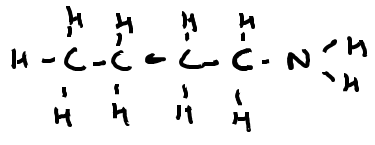 H H H H
H - C - C - C - C - N H
H
H H H H